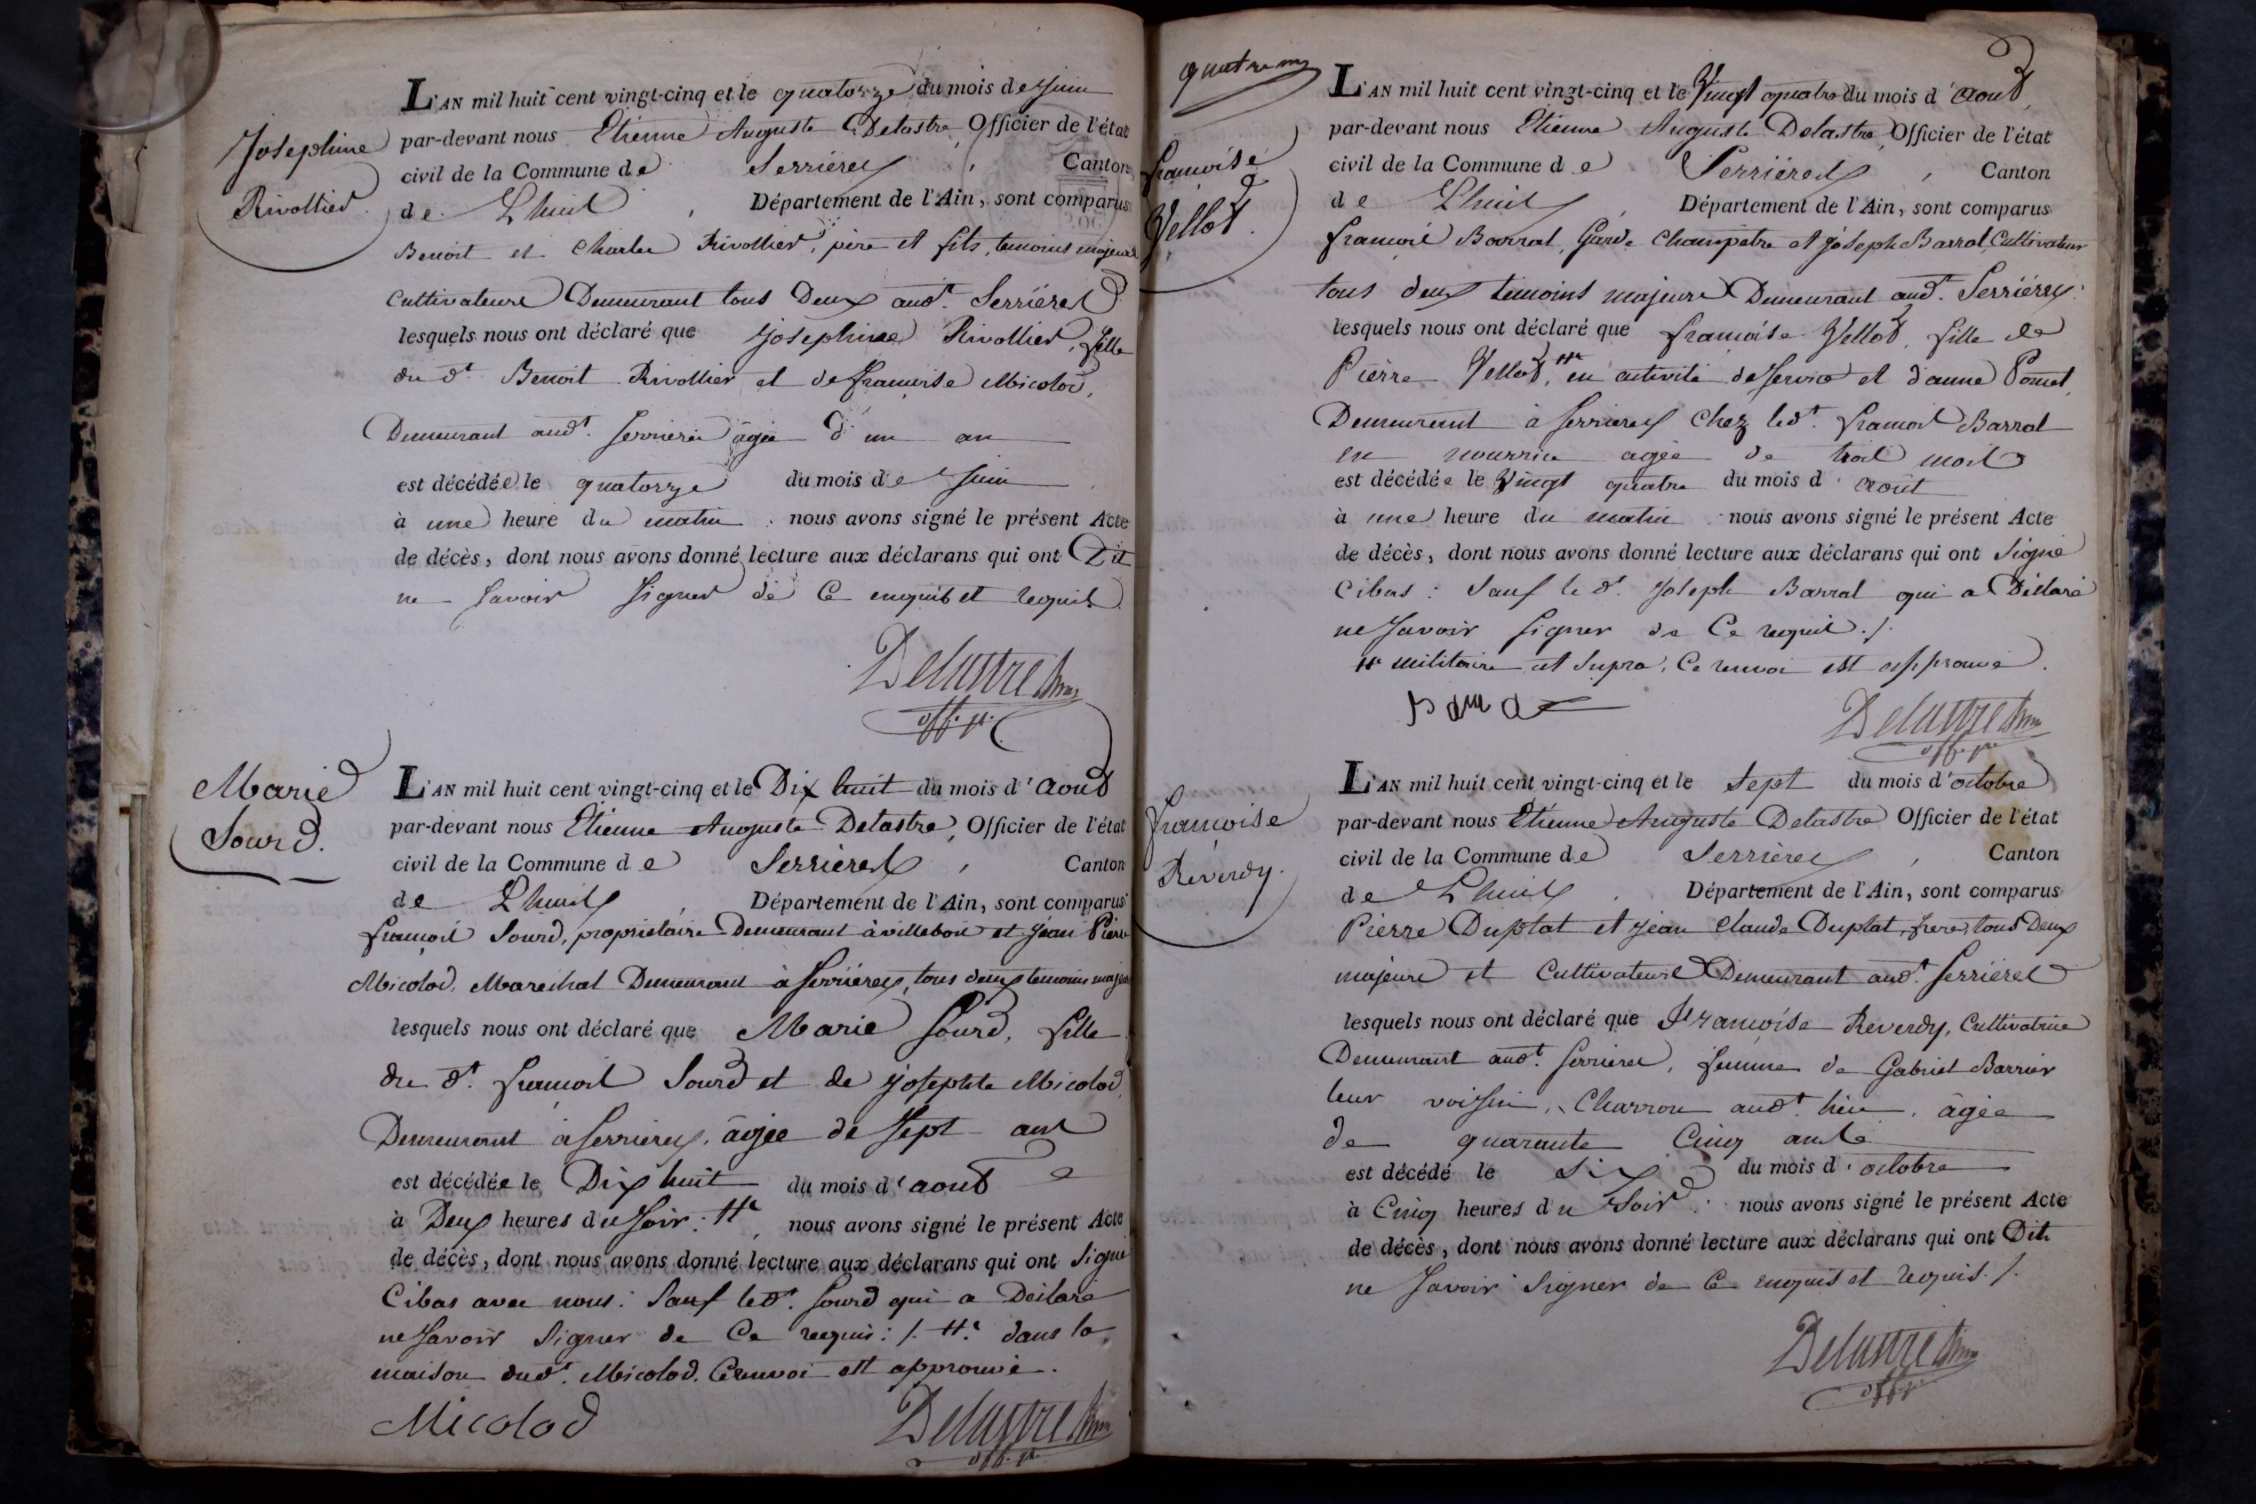 Josephine
Rivollier
L'AN mil huit cent vingt-cinq et le quatorze du mois de Juin
par-devant nous Etienne Auguste Delastre, Officier de l'état
civil de la Commune de Serrières, Canton
de Lhuis, Département de l'Ain, sont comparus
Benoit et Charles Rivollier, père et fils, temoins majeurs
Cultivateurs Demeurant tous Deux aud.t Serrières
lesquels nous ont déclaré que Josephine Rivollier, fille
du d.t Benoit Rivollier et de françoise Micolod,
Demeurant aud.t Serrières âgée d'un an
est décédée le quatorze du mois de Juin
à une heure du matin. nous avons signé le présent Acte
de décès, dont nous avons donné lecture aux déclarans qui ont Dit
ne Savoir Signer de Ce enquis et requis
Delastre
off. p.
Marie
Sourd.
L'AN mil huit cent vingt-cinq et le Dix huit du mois d'Aout
par-devant nous Etienne Auguste Delastre, Officier de l'état
civil de la Commune de Serrières, Canton
de Lhuis, Département de l'Ain, sont comparus
françois Sourd, propriétaire Demeurant à villebois et Jean Pierre
Micolod, Marechal Demeurant à Serrières, tous deux temoins majeurs
lesquels nous ont déclaré que Marie Sourd, fille
du d.t françois Sourd et de Josephte Micolod,
Demeurant à Serrières, âgée de Sept ans
est décédée le Dix huit du mois d'aout
à Deux heures du Soir: #.e, nous avons signé le présent Acte
de décès, dont nous avons donné lecture aux déclarans qui ont Signé
Cibas avec nous: Sauf le d.t Sourd qui a Déclaré
ne Savoir Signer de Ce requis: /. #.e dans la
maison dud.t Micolod. Ce renvoi est approuvé.
Micolod
Delastre
off. p.
quatre
françoise
Vellot.
L'AN mil huit cent vingt-cinq et le Vingt quatre du mois d'Aout,
par-devant nous Etienne Auguste Delastre, Officier de l'état
civil de la Commune de Serrières, Canton
de Lhuis, Département de l'Ain, sont comparus
françois Barral, Garde Champêtre et Joseph Barral, Cultivateur
tous deux temoins majeurs Demeurant aud.t Serrières.
lesquels nous ont déclaré que françoise Vellot, fille de
Pierre Vellot, #.e en activité de Service et d'anne Pomet,
Demeurant à Serrières Chez le d.t françois Barral
en nourrice agée de trois mois
est décédée le Vingt quatre du mois d'Aout
à une heure du matin nous avons signé le présent Acte
de décès, dont nous avons donné lecture aux déclarans qui ont Signé
Cibas: Sauf le d.t Joseph Barral qui a Déclaré
ne Savoir Signer de Ce requis. /.
#.e militaire et Supra, Ce renvoi est approuvé.
Delastre
off. p.
françoise
Reverdy.
L'AN mil huit cent vingt-cinq et le Sept du mois d'octobre
par-devant nous Etienne Auguste Delastre Officier de l'état
civil de la Commune de Serrières, Canton
de Lhuis. Département de l'Ain, sont comparus
Pierre Duplat et Jean Claude Duplat, frères, tous Deux
majeurs et Cultivateurs Demeurant aud.t Serrières
lesquels nous ont déclaré que françoise Reverdy, Cultivatrice
Demeurant aud.t Serrières, femme de Gabriel Barrier
leur voisin, Charron aud.t lieu, âgée
de quarante Cinq ans
est décédé le Six du mois d'octobre
à Cinq heures du Soir. nous avons signé le présent Acte
de décès, dont nous avons donné lecture aux déclarans qui ont Dit
ne Savoir Signer de Ce enquis et requis. /.
Delastre
off. p.